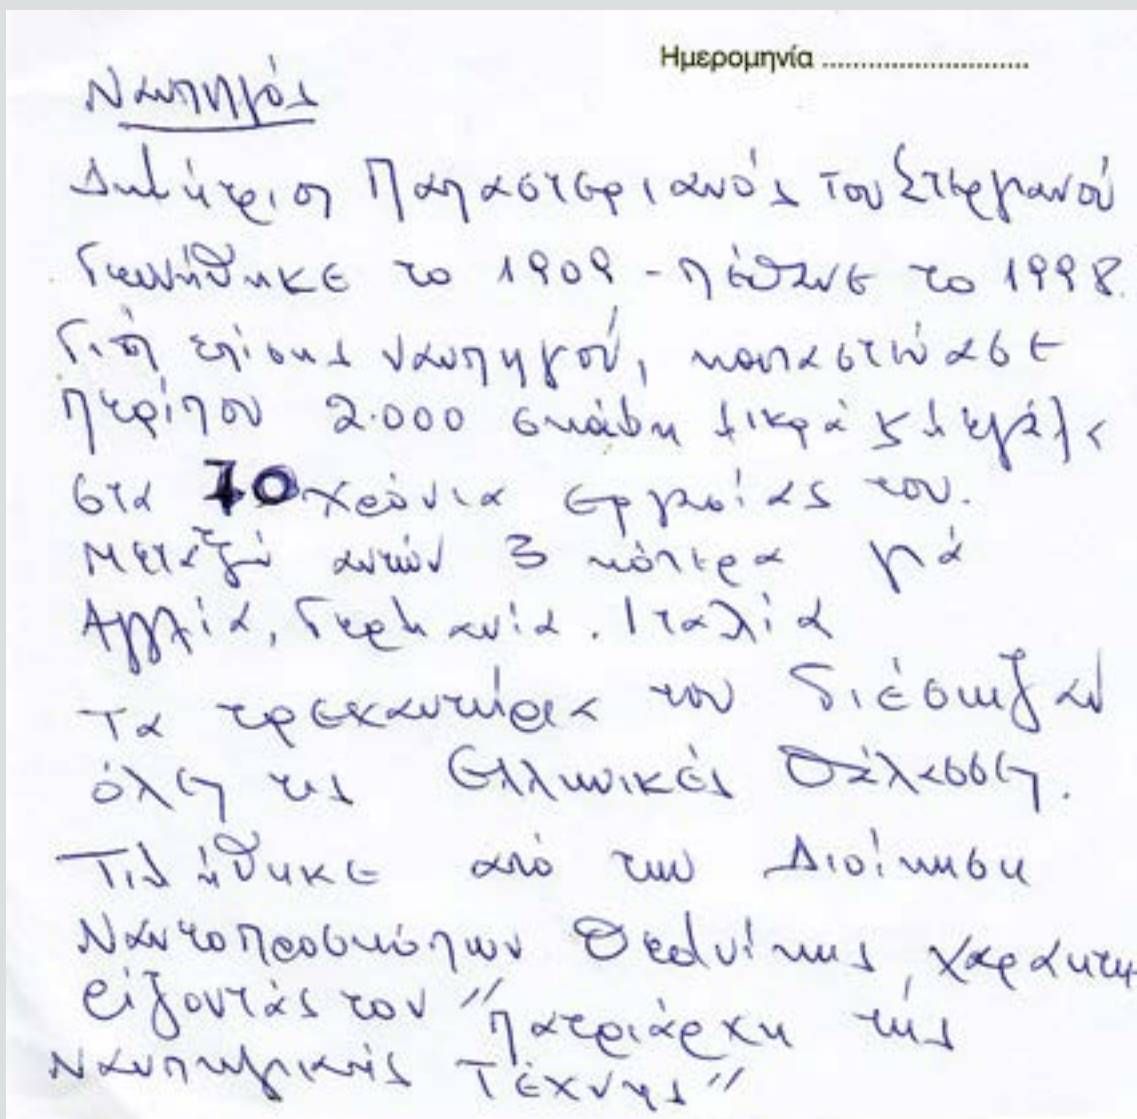 Ημερομηνία ............................
Ναυπηγός
Δημήτριος Παπαστεριανός του Στεργιανού
Γεννήθηκε το 1909 - πέθανε το 1998.
Γιός επίσης ναυπηγού, κατασκεύασε
περίπου 2.000 σκάφη μικρά & μεγάλα
στα 70 χρόνια εργασίας του.
Μεταξύ αυτών 3 κότερα γιά
Αγγλία, Γερμανία. Ιταλία
Τα τρεχαντήρια του διέσχιζαν
όλες τις Ελληνικές Θάλασσες.
Τιμήθηκε από την Διοίκηση
Ναυτοπροσκόπων Θεσ/νίκης, χαρακτη-
ρίζοντάς τον "πατριάρχη της
Ναυπηγικής Τέχνης"